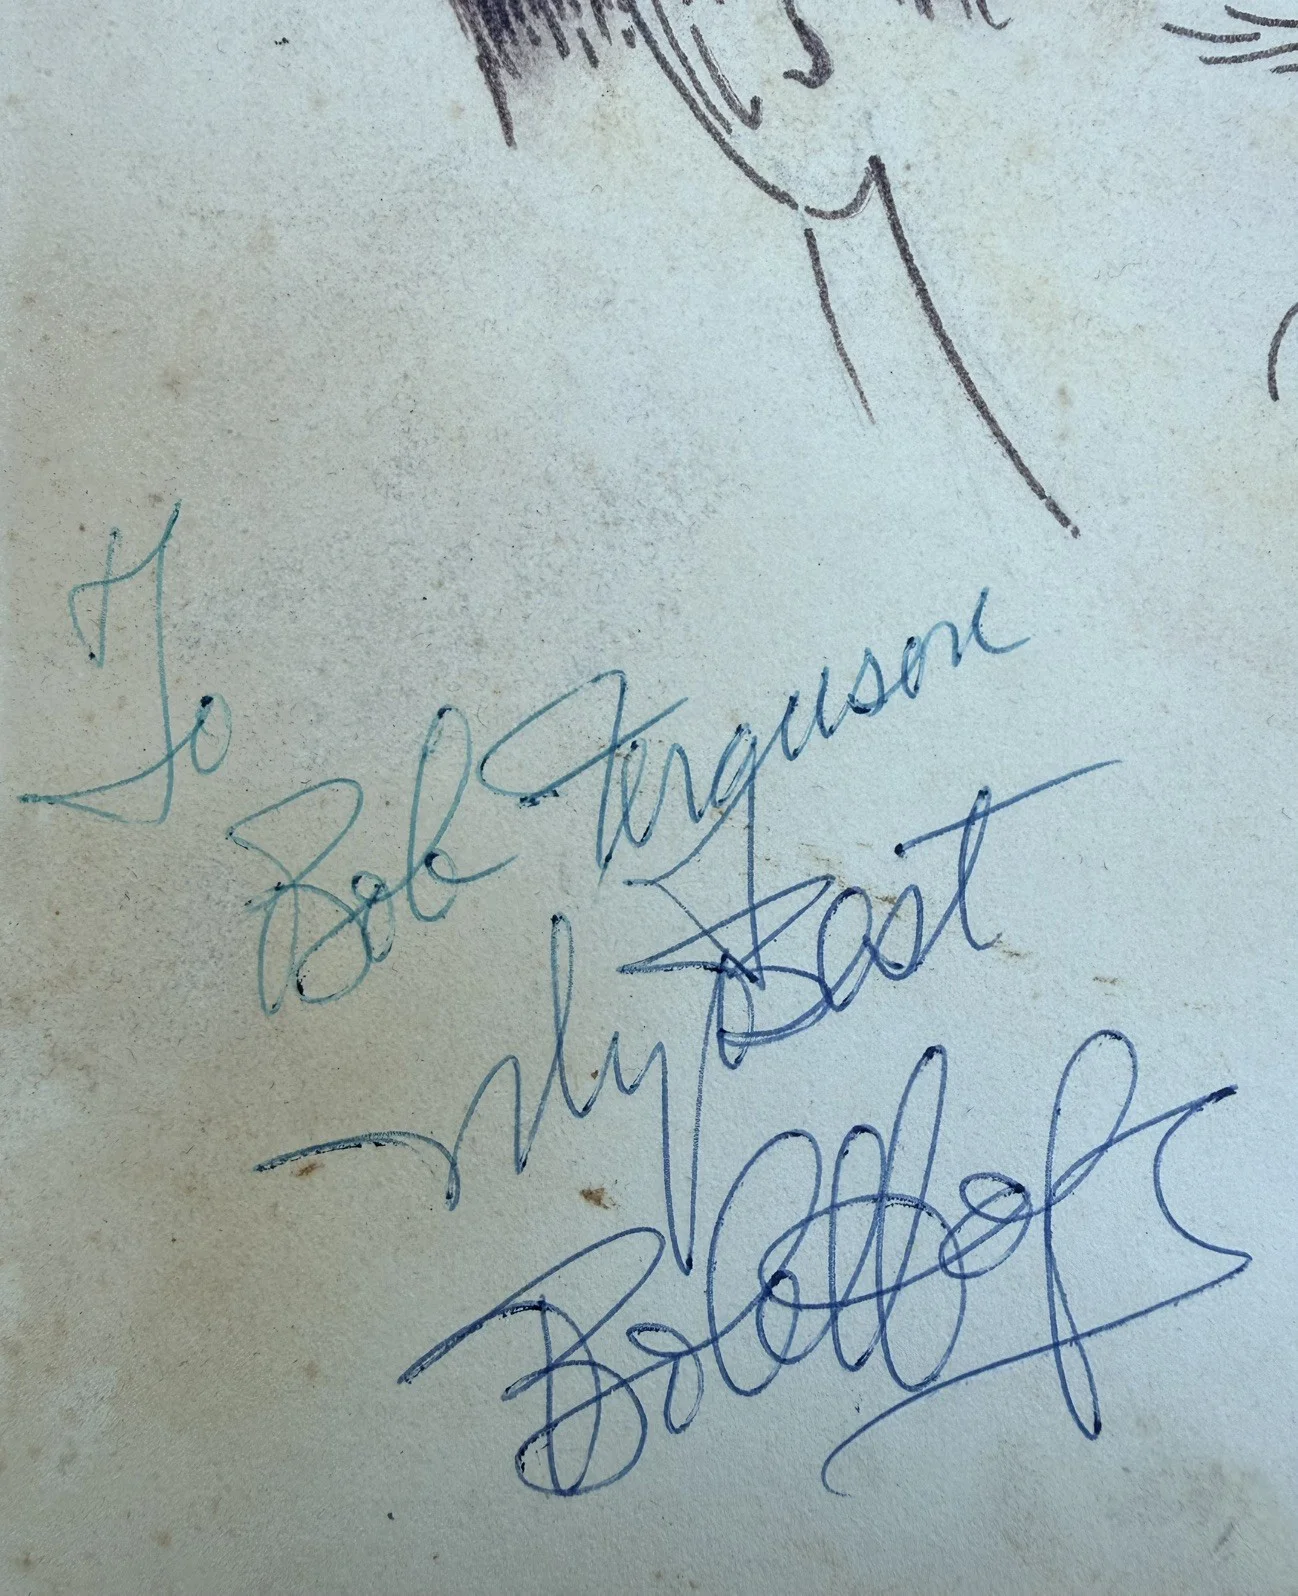 To
Bob Ferguson
My Best
Bob Hope